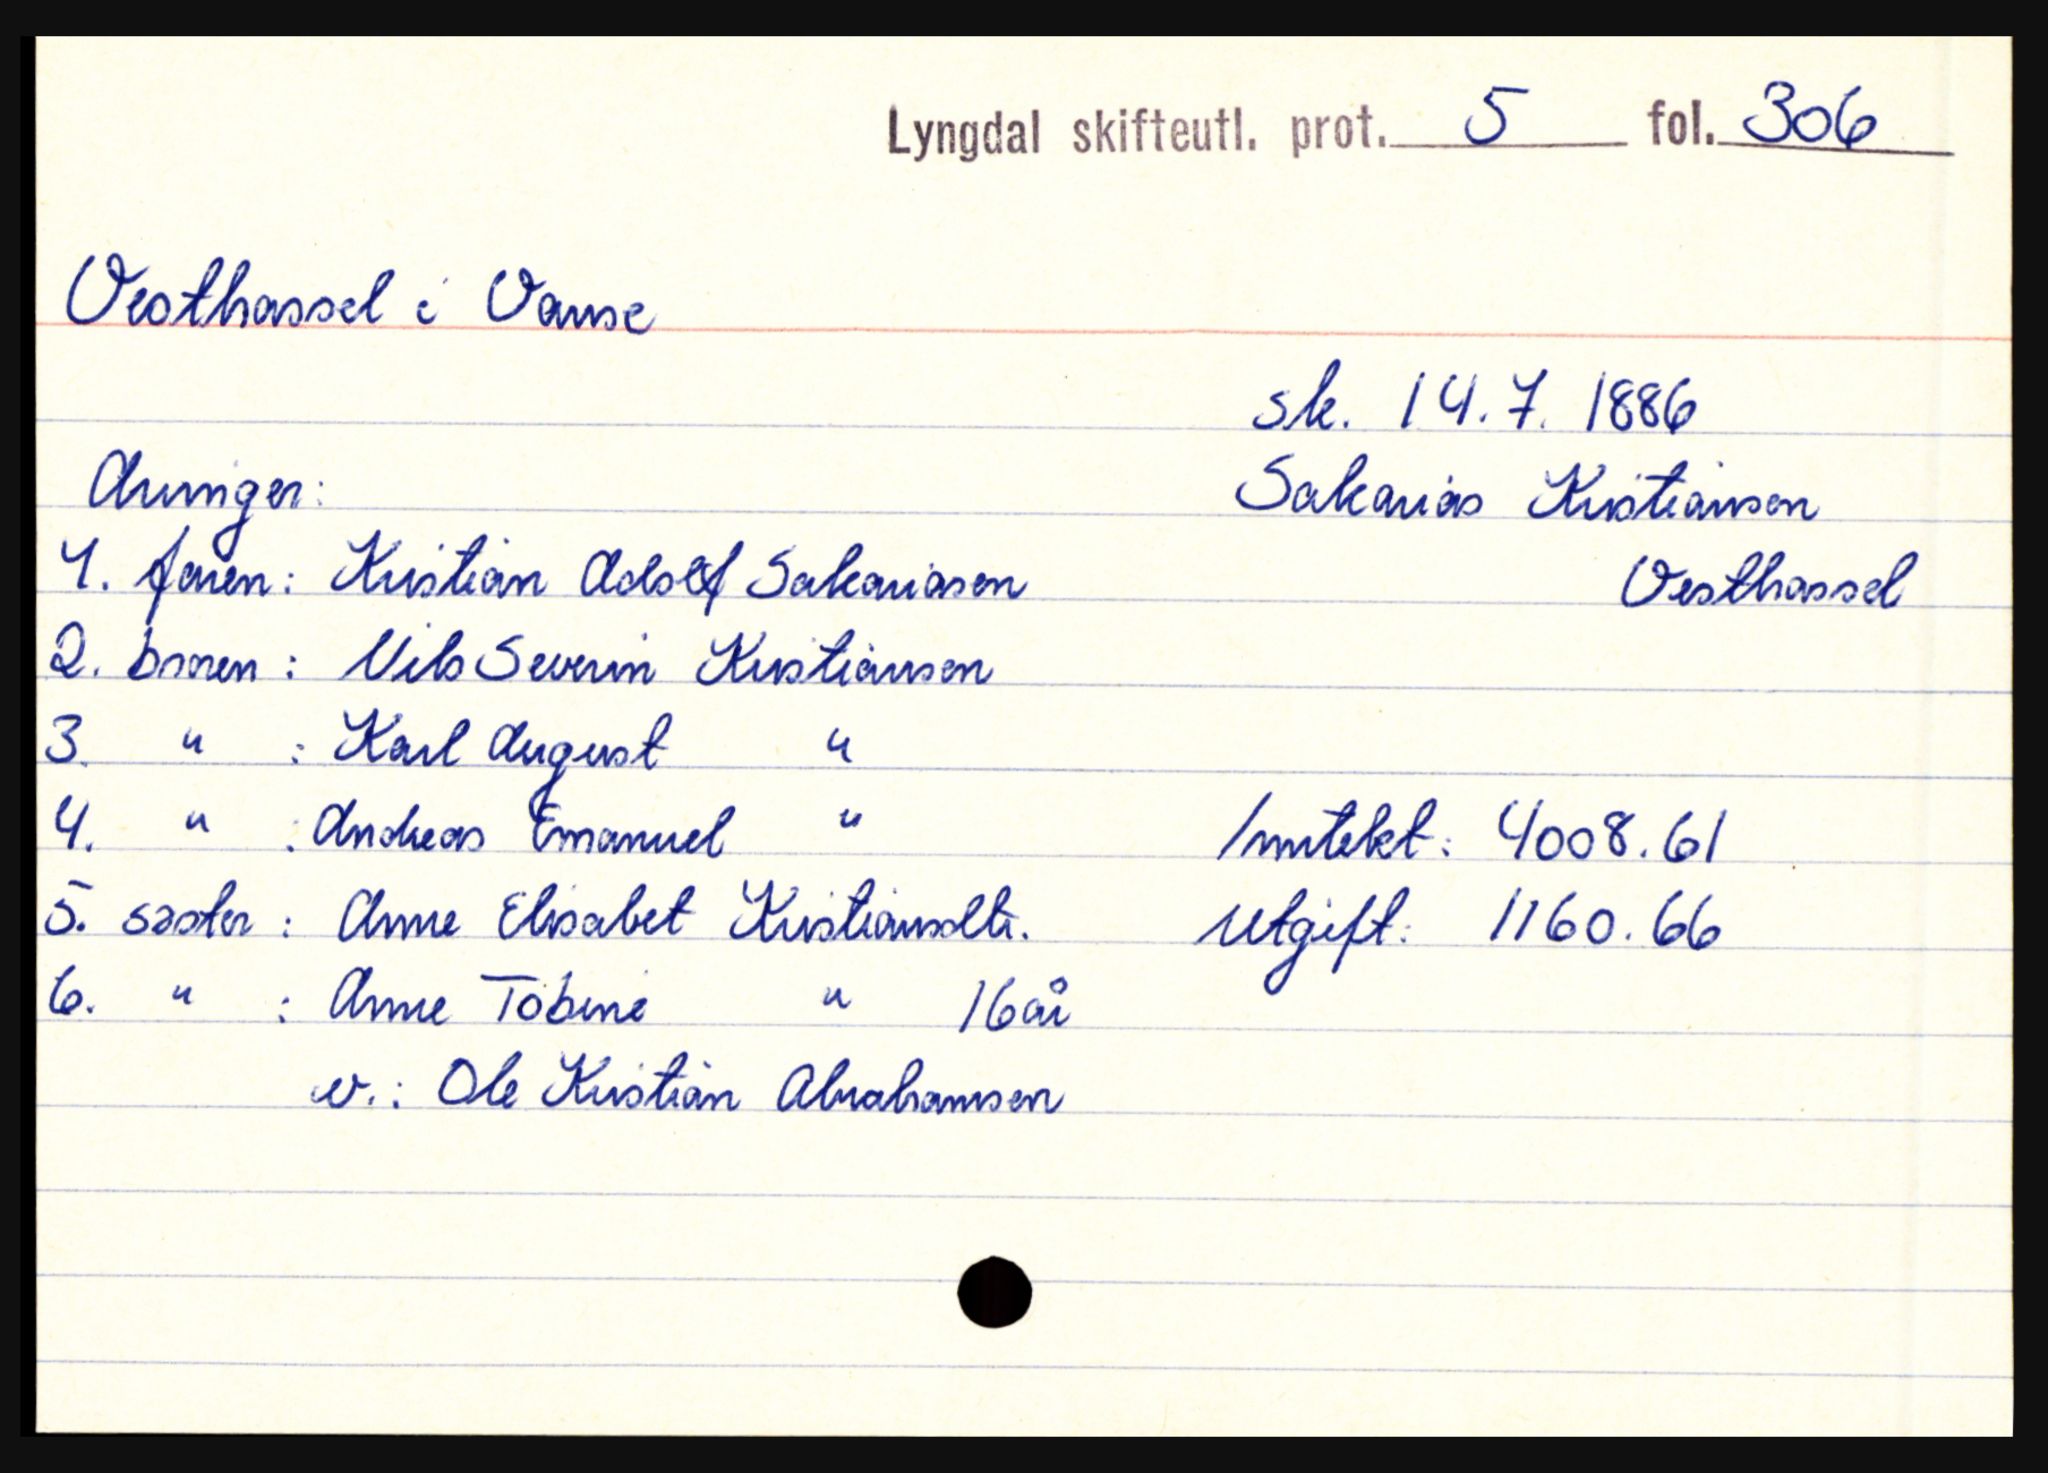 Lyngdal skifteutl. prot. 5 fol. 306
Vesthassel i Vanse
sk. 14.7. 1886
Arvinger: Sakarias Kristiansen
1. faren: Kristian Adolf Sakariasen Vesthassel
2. broren: Nils Severin Kristiansen
3. " : Karl August "
4. " : Andreas Emanuel " Inntekt: 4008.61
5. søster: Anne Elisabet Kristiansdtr. Utgift: 1160.66
6. " : Anne Tobine " 16 år
v.: Ole Kristian Abrahamsen